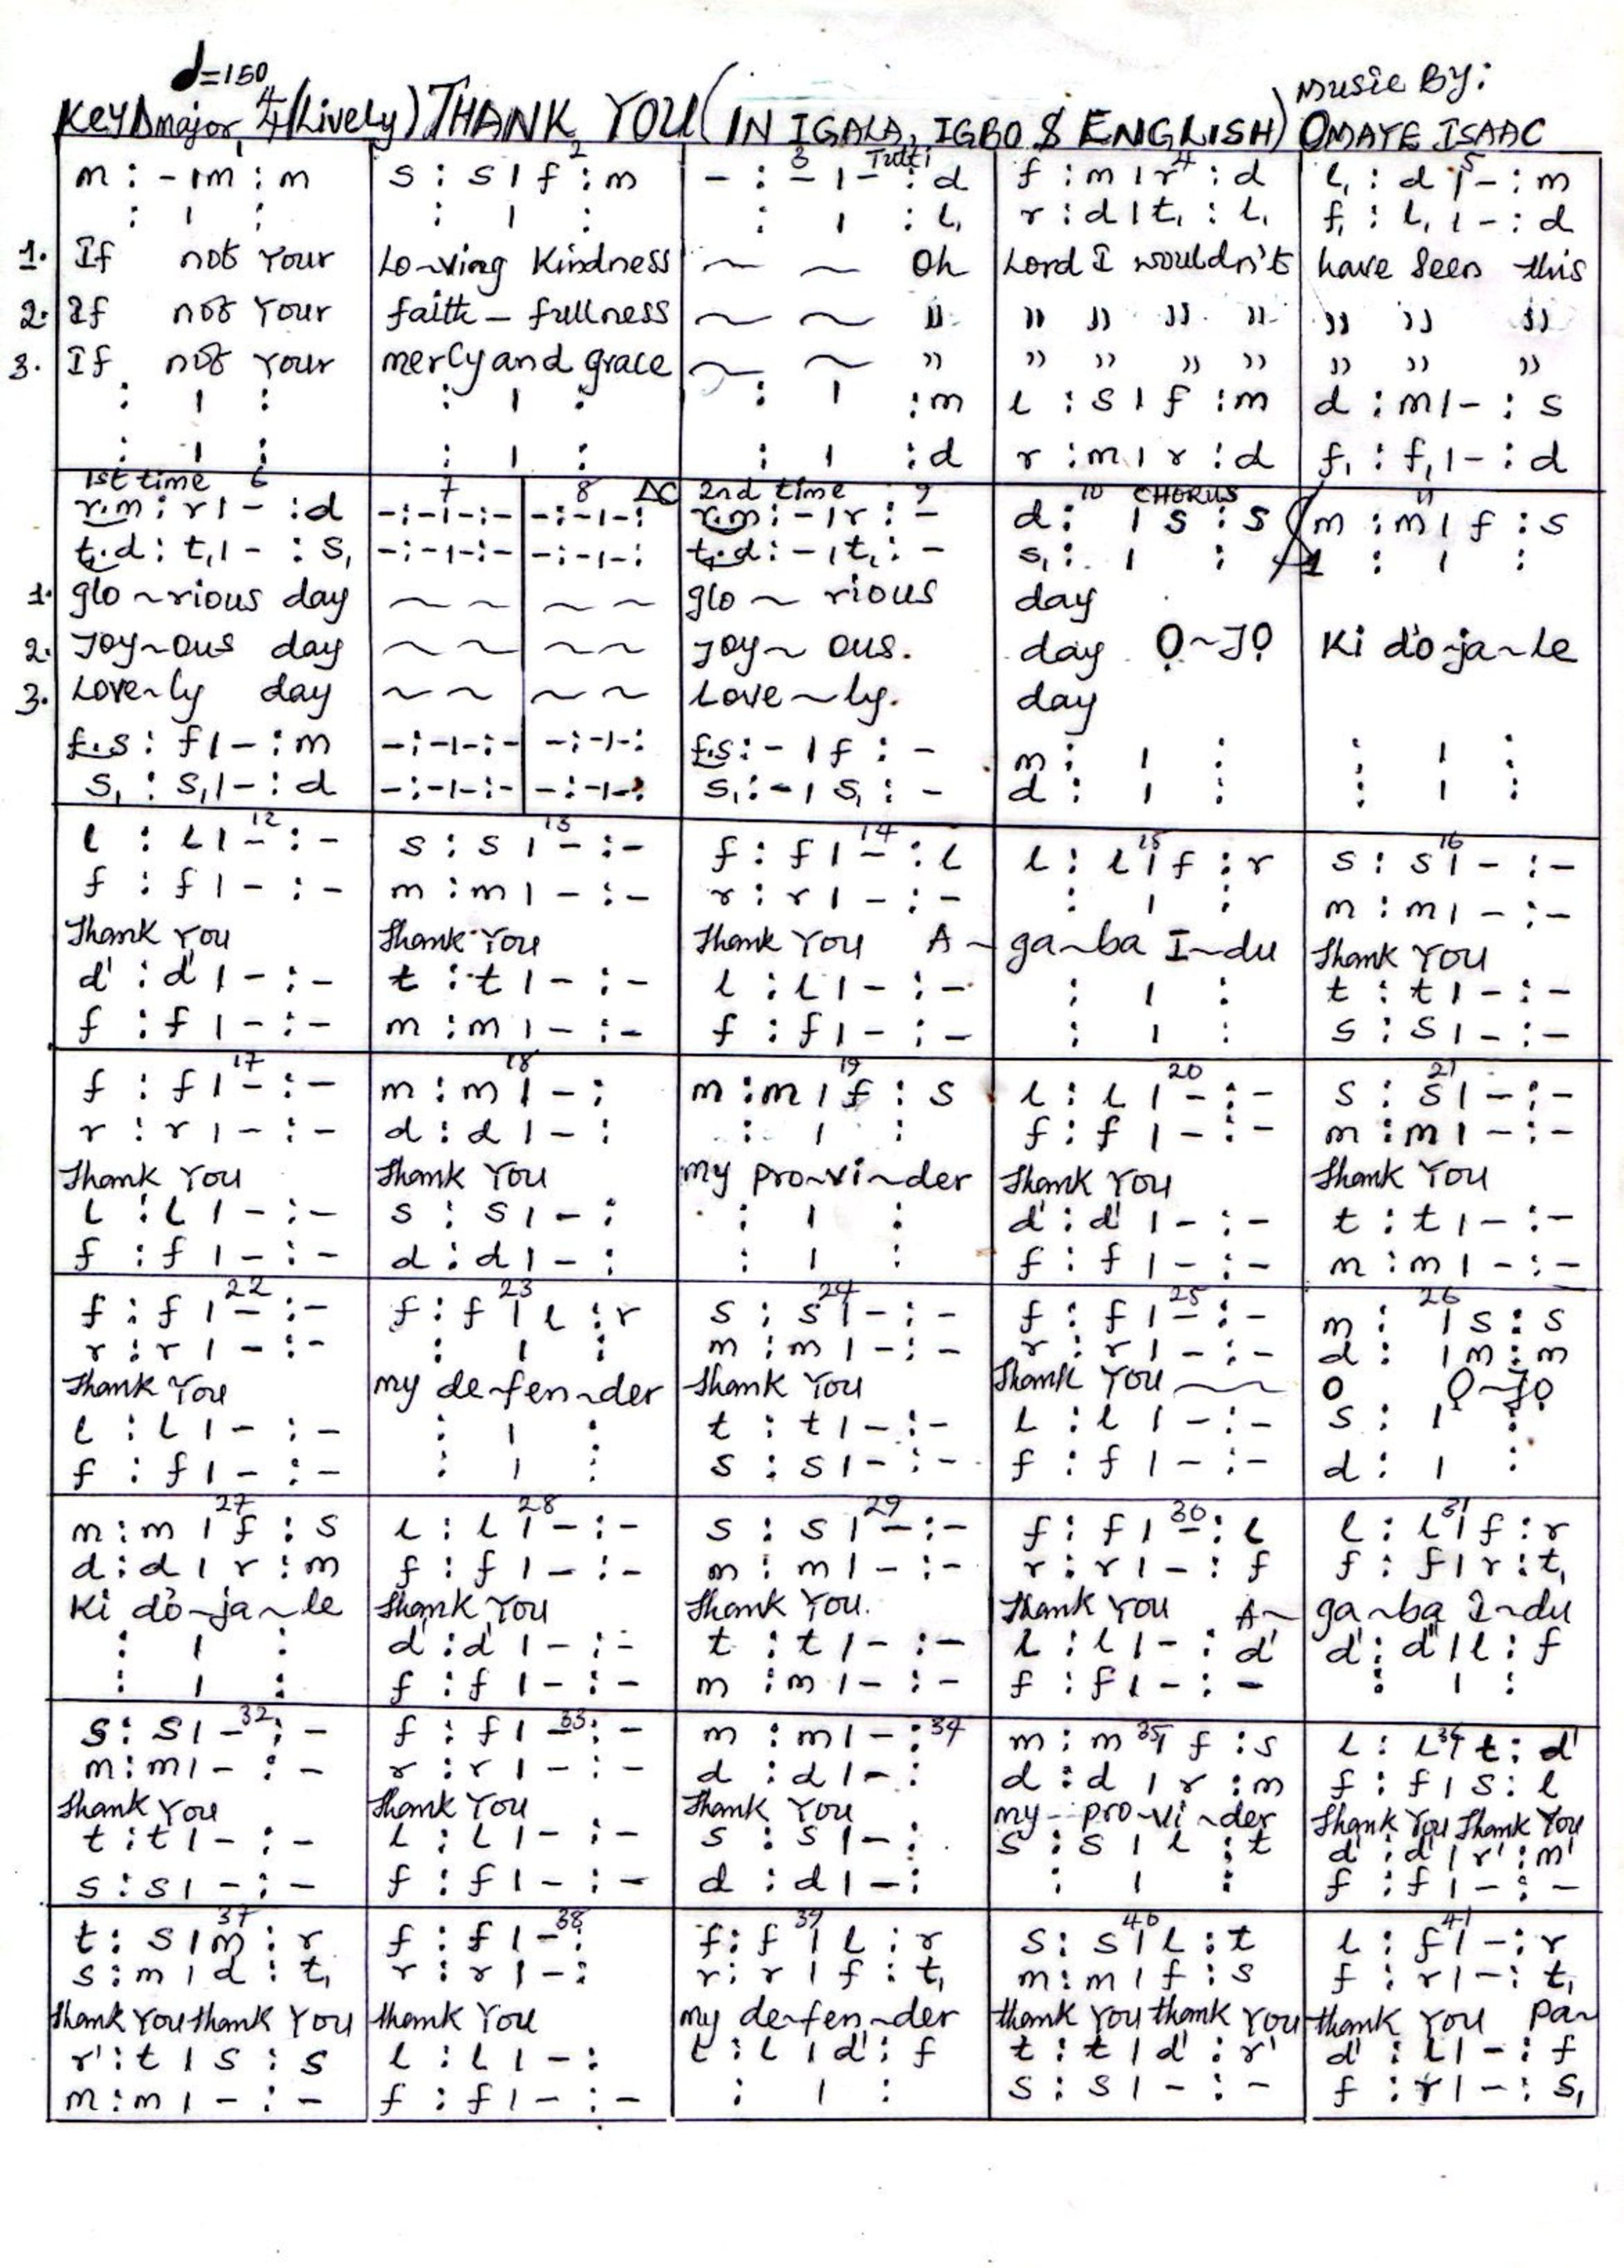 𝅗𝅥=150
Key D major, 4/4 (Lively) THANK YOU (IN IGALA, IGBO & ENGLISH) Music By: OMAYE ISAAC
1 2 3 Tutti 4 5
m : - | m : m   s : s | f : m   - : - | - : d   f : m | r : d   l, : d | - : m
: | :   : | :   : | : l,   r : d | t, : l,   f, : l, | - : d
1. If not Your Lo~ving Kindness ~ ~ Oh Lord I wouldn't have Seen this
2. If not Your faith - fullness ~ ~ " " " " " " " "
3. If not Your mercy and grace ~ ~ " " " " " " " "
: | :   : | :   : | : m   l : s | f : m   d : m | - : s
: | :   : | :   : | : d   r : m | r : d   f, : f, | - : d
1st time 6 7 8 DC 2nd time 9 10 CHORUS 11
r.m : r | - : d   - : - | - : -   - : - | - :   r.m : - | r : -   d : | s : s   m : m | f : s
t,.d : t, | - : s,   - : - | - : -   - : - | - :   t,.d : - | t, : -   s, : | :   : | :
1. glo~rious day ~ ~ ~ ~ glo~ rious day
2. Joy~ous day ~ ~ ~ ~ Joy~ ous. day Ọ~Jọ Ki dó~ja~le
3. Love~ly day ~ ~ ~ ~ Love~ly. day
f.s : f | - : m   - : - | - : -   - : - | - :   f.s : - | f : -   m : | :   : | :
s, : s, | - : d   - : - | - : -   - : - | - :   s, : - | s, : -   d : | :   : | :
12 13 14 15 16
l : l | - : -   s : s | - : -   f : f | - : l   l : l | f : r   s : s | - : -
f : f | - : -   m : m | - : -   r : r | - : -   : | :   m : m | - : -
Thank You Thank You Thank You A~ ga~ba I~du Thank You
d' : d' | - : -   t : t | - : -   l : l | - : -   : | :   t : t | - : -
f : f | - : -   m : m | - : -   f : f | - : -   : | :   s : s | - : -
17 18 19 20 21
f : f | - : -   m : m | - :   m : m | f : s   l : l | - : -   s : s | - : -
r : r | - : -   d : d | - :   : | :   f : f | - : -   m : m | - : -
Thank You Thank You my pro~vi~der Thank You Thank You
l : l | - : -   s : s | - :   : | :   d' : d' | - : -   t : t | - : -
f : f | - : -   d : d | - :   : | :   f : f | - : -   m : m | - : -
22 23 24 25 26
f : f | - : -   f : f | l : r   s : s | - : -   f : f | - : -   m : | s : s
r : r | - : -   : | :   m : m | - : -   r : r | - : -   d : | m : m
Thank You my de~fen~der Thank You Thank You ~ O Ọ~Jọ
l : l | - : -   : | :   t : t | - : -   l : l | - : -   s : | :
f : f | - : -   : | :   s : s | - : -   f : f | - : -   d : | :
27 28 29 30 31
m : m | f : s   l : l | - : -   s : s | - : -   f : f | - : l   l : l | f : r
d : d | r : m   f : f | - : -   m : m | - : -   r : r | - : f   f : f | r : t,
Ki dó~ja~le Thank You Thank You. Thank You A~ ga~ba I~du
: | :   d' : d' | - : -   t : t | - : -   l : l | - : d'   d' : d' | l : f
: | :   f : f | - : -   m : m | - : -   f : f | - : -   : | :
32 33 34 35 36
s : s | - : -   f : f | - : -   m : m | - :   m : m | f : s   l : l | t : d'
m : m | - : -   r : r | - : -   d : d | - :   d : d | r : m   f : f | s : l
Thank You Thank You Thank You my pro~vi~der Thank You Thank You
t : t | - : -   l : l | - : -   s : s | - :   s : s | l : t   d' : d' | r' : m'
s : s | - : -   f : f | - : -   d : d | - :   : | :   f : f | - : -
37 38 39 40 41
t : s | m : r   f : f | - :   f : f | l : r   s : s | l : t   l : f | - : r
s : m | d : t,   r : r | - :   r : r | f : t,   m : m | f : s   f : r | - : t,
Thank You thank You thank You my de~fen~der thank You thank You thank You Pa~
r' : t | s : s   l : l | - :   l : l | d' : f   t : t | d' : r'   d' : l | - : f
m : m | - : -   f : f | - : -   : | :   s : s | - : -   f : r | - : s,